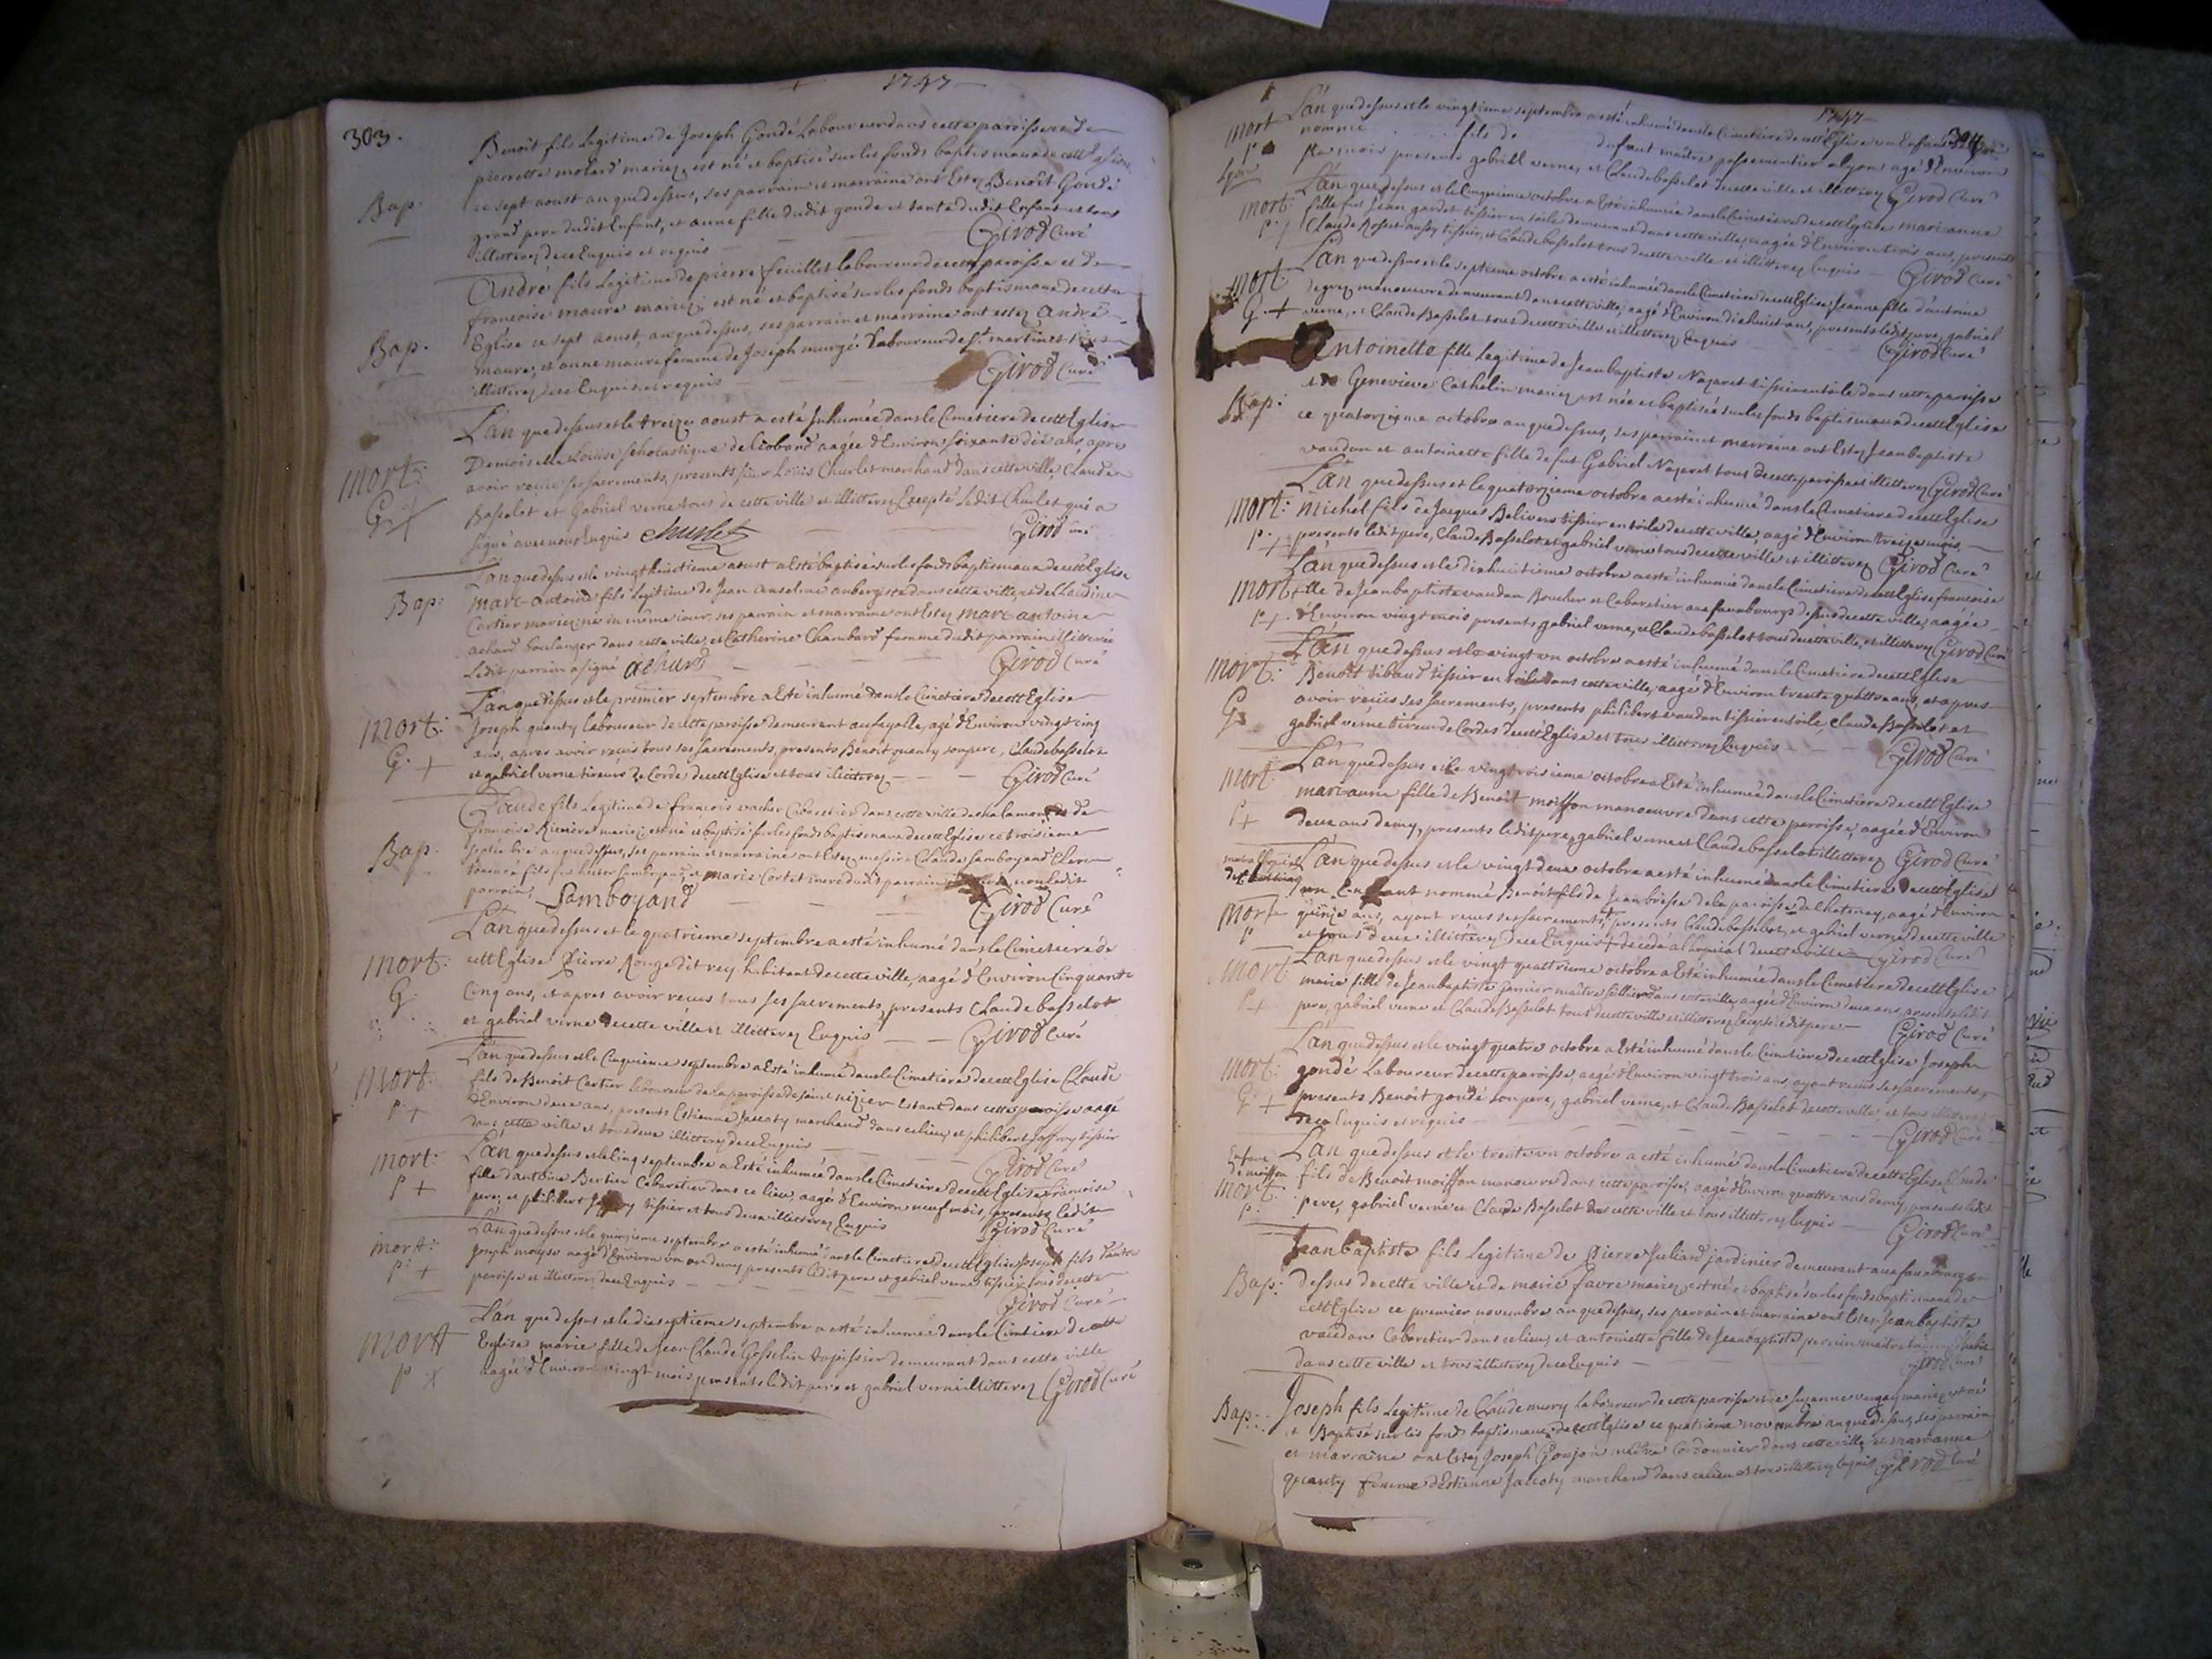 1747
303.
Benoît fils Legitime de Joseph Gondé Laboureur dans cette paroisse et de
pierrette molard mariez, est né et baptisé sur les fonds baptismaux de cett Eglise
Bap. ce sept aoust an que dessus, ses parrain et marraine ont Estez Benoît Gondé
grand pere dudit Enfant, et anne fille dudit gonde et tante dudit Enfant et tous
illitterez de ce Enquis et requis Girod Curé
André fils Legitime de pierre feuillet laboureur de cette paroisse et de
francoise maure mariez, est né et baptisé sur les fonds baptismaux de cette
Bap. Eglise ce sept aoust, an que dessus, ses parrain et marraine ont estez André
maure, et anne maure femme de Joseph murgé Laboureur de st. martin et tous
illitterez de ce Enquis et requis Girod Curé
L'an que dessus et le treize aoust a esté Inhumée dans le Cimetiere de cett Eglise
Demoiselle Louise scholastique de Liobard aagée d'Environ soixante dix ans, apres
mort: avoir receu ses sacrements, presents sieur Loüis Churlet marchand dans cette ville, Claude
G. + Basselot et Gabriel verne tous de cette ville et illitterez Excepté ledit Churlet qui a
signé avec nous Enquis Churlet Girod Curé
L'an que dessus et le vingt huictieme aoust a Esté baptisé sur les fonds baptismaux de cett Eglise
Bap: Marc-antoine fils Legitime de Jean anselme aubergiste dans cette ville, et de Claudine
Cartier mariez, né du même jour, ses parrain et marraine ont Estez Marc-antoine
achard boulanger dans cette ville, et Catherine Chambard femme dudit parrain illitterée
Ledit parrain a signé achard Girod Curé
L'an que dessus et le premier septembre a Esté inhumé dans le Cimetiere de cett Eglise
mort: Joseph quanty laboureur de cette paroisse demeurant au fayolle, agé d'Environ vingt cinq
ans, apres avoir receus tous ses sacrements, presents Benoît quanty son pere, Claude basselot
G. + et gabriel verne tireurs de Corde de cett Eglise et tous illitterez Girod Curé
Claude fils Legitime de francois vacher Cabaretier dans cette ville de chalamont et de
francoise Riviere mariez, est né et baptisé sur les fonds baptismaux de cett Eglise, ce troisieme
Bap. septembre an que dessus, ses parrain et marraine ont Estez messire Claude Samboyand Clerc
tonsuré fils et marie Cortet mere dudit parrain non ledit
parrain, Samboyand Girod Curé
L'an que dessus et le quatrieme septembre a esté inhumé dans le Cimetiere de
mort: cett Eglise Pierre Rouge dit rey habitant de cette ville, aagé d'Environ Cinquante
G. Cinq ans, et apres avoir receus tous ses sacrements, presents Claude basselot
et gabriel verne de cette ville et illitterez Enquis Girod Curé
L'an que dessus et le Cinquieme septembre a Esté inhumé dans le Cimetiere de cett Eglise Claude
Mort: fils de Benoît Cartier laboureur de la paroisse de saint nizier Estant dans cette paroisse aagé
P. + d'Environ deux ans, presents Estienne Jaccoty marchand dans ce lieu, et philibert Joffroy tissier
dans cette ville et tous deux illitterez de ce Enquis Girod Curé
mort: L'an que dessus et le Cinq septembre a Esté inhumée dans le Cimetiere de cett Eglise francoise
P + fille d'antoine Bertier Cabaretier dans ce lieu, aagée d'Environ neuf mois, presents ledit
pere, et philibert Joffroy tissier et tous deux illitterez Enquis Girod Curé
mort: L'an que dessus et le quinzieme septembre a esté inhumé dans le Cimetiere de cett Eglise Joseph fils d'autre
P. + Joseph moyse aagé d'Environ un an demy presents ledit pere et gabriel verne tissier tous de cette
paroisse et illitterez de ce Enquis Girod Curé
L'an que dessus et le dix septieme septembre a esté inhumée dans le Cimetiere de cette
mort Eglise marie fille de Jean Claude Gosselin tapissier demeurant dans cette ville
P + aagée d'Environ vingt mois presents ledit pere et gabriel verne illitterez Girod Curé
1747
304
mort L'an que dessus et le vingtieme septembre a esté inhumé dans le Cimetiere de cett Eglise un Enfant
P nommé fils de dufaut maître passementier a Lyon agé d'Environ
Lyon mois presents gabriel verne, et Claude basselot de cette ville et illitterez Girod Curé
mort: L'an que dessus et le Cinquieme octobre a Esté inhumée dans le Cimetiere de cett Eglise marianne
P. + fille de Jean gardet tissier en toile demeurant dans cette ville, aagée d'Environ trois ans, presents
Claude Rosset aussy tissier, et Claude basselot tous de cette ville et illitterez Enquis Girod Curé
mort: L'an que dessus et le septieme octobre a esté inhumée dans le Cimetiere de cett Eglise Jeanne fille d'antoine
G. + degrez manoeuvre demeurant dans cette ville, aagée d'Environ dixhuict ans, presents ledit pere, gabriel
verne, et Claude Basselot tous de cette ville et illitterez Enquis Girod Curé
Antoinette fille Legitime de Jean baptiste Nazaret tissier en toile dans cette paroisse
Bap: et de Genevieve Cathelin mariez est née et baptisée sur les fonds baptismaux de cett Eglise
ce quatorzieme octobre an que dessus, ses parrain et marraine ont Estez Jean baptiste
vaudan et antoinette fille de fut Gabriel Nazaret tous de cette paroisse et illitterez Girod Curé
L'an que dessus et le quatorzieme octobre a esté inhumé dans le Cimetiere de cett Eglise
mort: Michel fils de Jacques Belivers tissier en toile de cette ville, aagé d'Environ treize mois,
P. + presents ledit pere, Claude Basselot et gabriel verne tous de cette ville et illitterez Girod Curé
L'an que dessus et le dixhuictieme octobre a esté inhumée dans le Cimetiere de cett Eglise francoise
mort fille de Jean baptiste vaudan Boucher et Cabaretier aux fauxbourgs dessus de cette ville, aagée
P + d'Environ vingt mois presents gabriel verne, et Claude basselot tous de cette ville, et illitterez Girod Curé
L'an que dessus et le vingt un octobre a esté inhumé dans le Cimetiere de cett Eglise
mort: Benoît tibaud tissier en toile dans cette ville, aagé d'Environ trente quattre ans, et apres
G. avoir receus ses sacrements, presents philibert vaudan tissier en toile, Claude Basselot et
gabriel verne tireur de Cordes de cett Eglise et tous illitterez Enquis Girod Curé
L'an que dessus et le vingt troisieme octobre a Esté inhumée dans le Cimetiere de cett Eglise
mort marianne fille de Benoît moisson manoeuvre dans cette paroisse, aagée d'Environ
P + deux ans demy, presents ledit pere, gabriel verne et Claude basselot illitterez Girod Curé
L'an que dessus et le vingt deux octobre a esté inhumé dans le Cimetiere de cett Eglise
un Enfant nommé Benoît fils de Jean bresse de la paroisse de Chatenay, aagé d'Environ
mort quinze ans, ayant receus ses sacrements, + presents Claude basselot, et gabriel verne de cette ville
P et tous deux illitterez de ce Enquis + decedé a l'hopital de cette ville Girod Curé
mort L'an que dessus et le vingt quattrieme octobre a Esté inhumée dans le Cimetiere de cett Eglise
marie fille de Jean baptiste Janier maître sellier dans cette ville, aagée d'Environ deux ans, presents ledit
P + pere, gabriel verne et Claude Basselot tous de cette ville et illitterez Excepté ledit pere Girod Curé
L'an que dessus et le vingt quatre octobre a Esté inhumé dans le Cimetiere de cett Eglise Joseph
mort: gondé Laboureur de cette paroisse, aagé d'Environ vingt trois ans, ayant receus ses sacrements,
G. + presents Benoît gondé son pere, gabriel verne, et Claude Basselot de cette ville et tous illitterez
de ce Enquis et requis Girod Curé
Enfant de moisson L'an que dessus et le trente un octobre a esté inhumé dans le Cimetiere de cette Eglise Claude
mort: fils de Benoît moisson manoeuvre dans cette paroisse, aagé d'Environ quattre ans demy, presents ledit
P. pere, gabriel verne et Claude Basselot de cette ville et tous illitterez Enquis Girod Curé
Jean baptiste fils Legitime de Pierre Juliard jardinier demeurant aux fauxbourgs
Bap: dessus de cette ville et de marie favre mariez, est né et baptisé sur les fonds baptismaux de
cett Eglise ce premier novembre an que dessus, ses parrain et marraine ont Estez Jean baptiste
vaudan Cabaretier dans ce lieu, et antoinette fille de Jean baptiste maître
dans cette ville et tous illitterez de ce Enquis Girod Curé
Bap: Joseph fils Legitime de Claude mury Laboureur de cette paroisse et de Suzanne mariez est né
et Baptisé sur les fonds baptismaux de cett Eglise ce quatrieme novembre an que dessus, ses parrain
et marraine ont Estez Joseph Goujon maître Cordonnier dans cette ville et marianne
quanty femme d'Estienne Jaccoty marchand dans ce lieu et tous illitterez Enquis Girod Curé